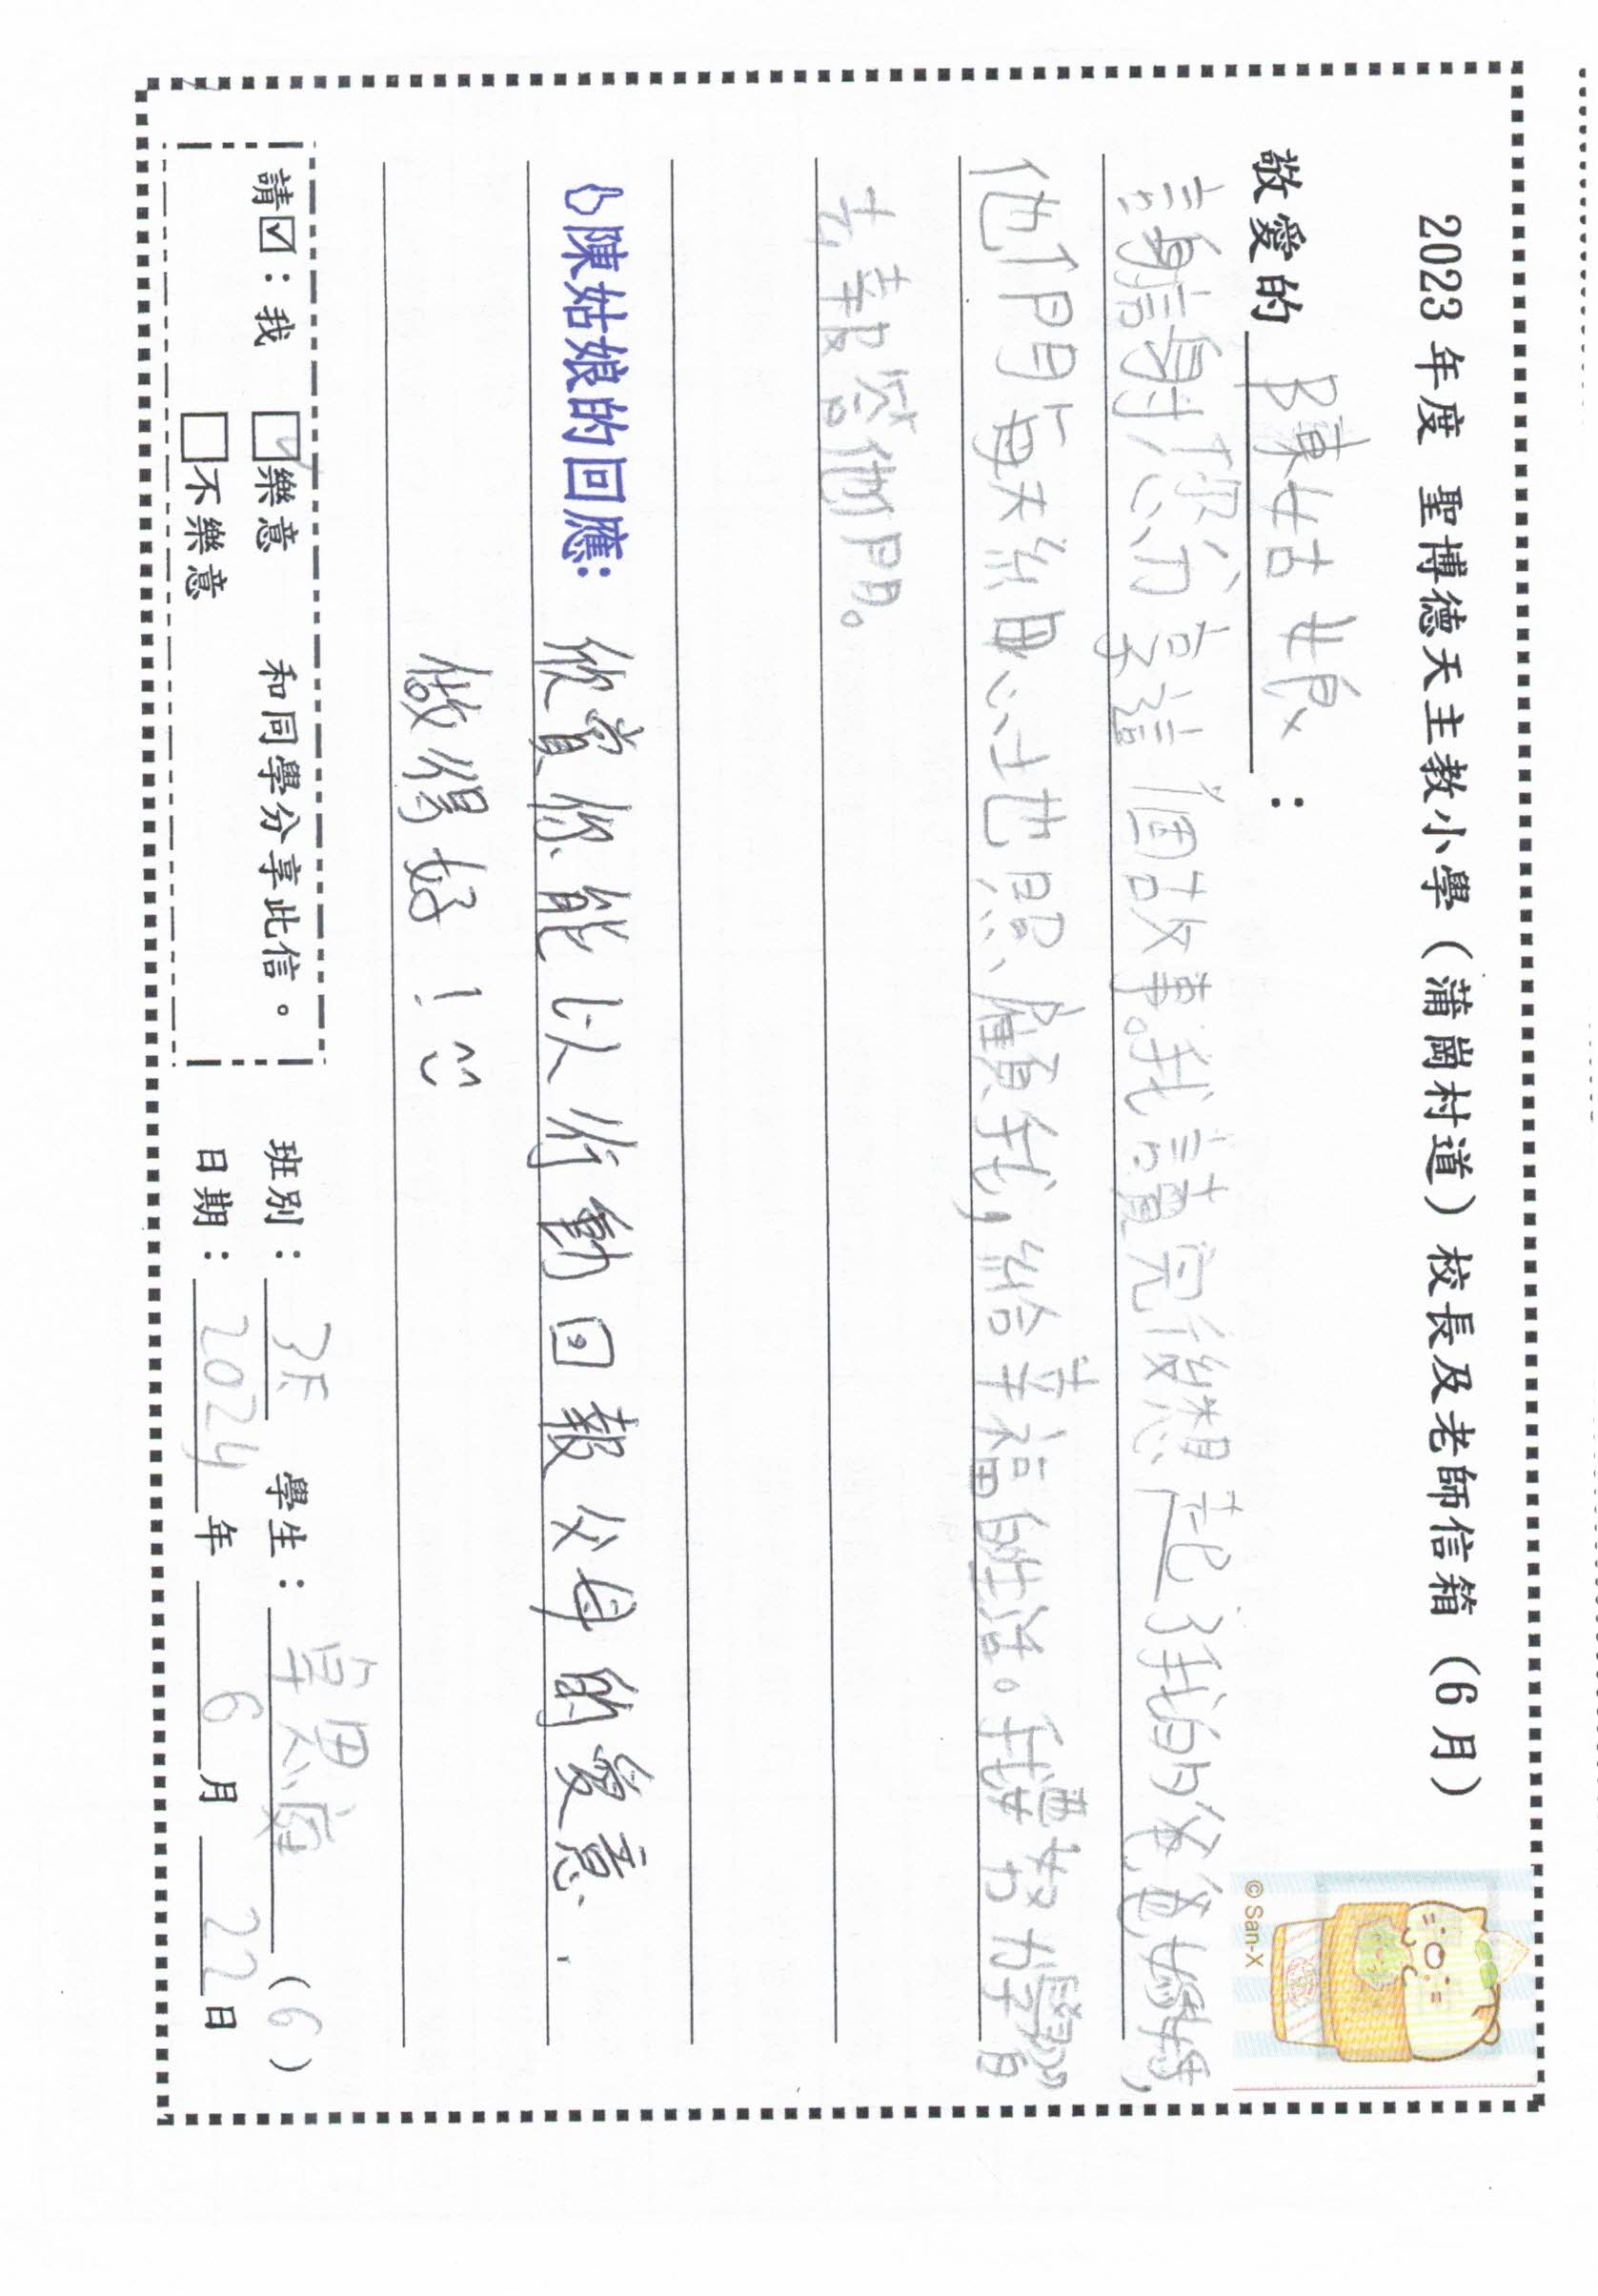 2023 年度 聖博德天主教小學（蒲崗村道）校長及老師信箱（6 月）
敬愛的 陳姑娘 ：
謝謝您分享這個故事。我讀完後想起了我的爸爸媽媽，
他們每天細心地照顧我，給幸福的生活。我要努力學習
去報答他們。
陳姑娘的回應： 欣賞你能以行動回報父母的愛意.
做得好！
請☑：我 ☑樂意 和同學分享此信。
☐不樂意
班別： 學生： 思 （6）
日期：2024 年 6 月 22 日
© San-X